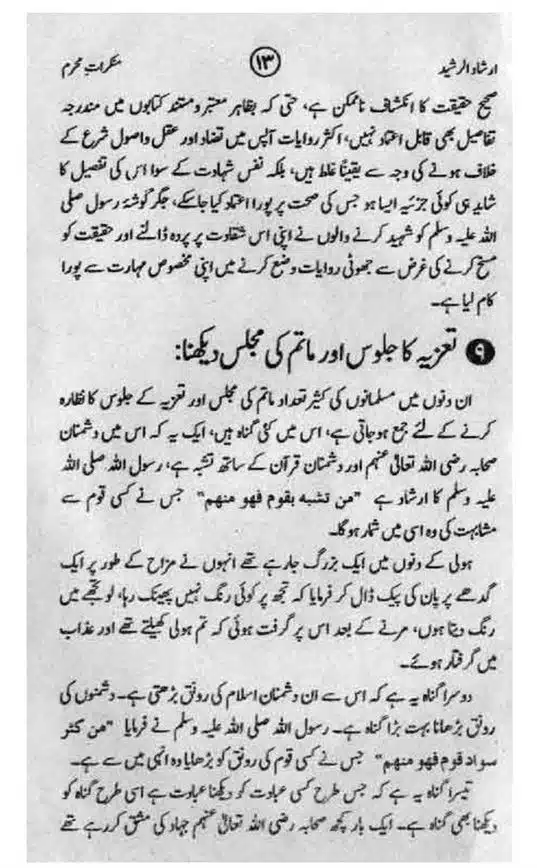 ارشاد الرشید ۱۳ منکراتِ محرم
صحیح حقیقت کا انکشاف ناممکن ہے، حتی کہ بظاہر معتبر و مستند کتابوں میں مندرجہ
تفاصیل بھی قابل اعتماد نہیں، اکثر روایات آپس میں تضاد اور عقل و اصول شرع کے
خلاف ہونے کی وجہ سے یقیناً غلط ہیں، بلکہ نفس شہادت کے سوا اس کی تفصیل کا
شاید ہی کوئی جزئیہ ایسا ہو جس کی صحت پر پورا اعتماد کیا جاسکے، جگر گوشۂ رسول صلی
اللہ علیہ وسلم کو شہید کرنے والوں نے اپنی اس شقاوت پر پردہ ڈالنے اور حقیقت کو
مسخ کرنے کی غرض سے جھوٹی روایات وضع کرنے میں اپنی مخصوص مہارت سے پورا
کام لیا ہے۔
۹ تعزیہ کا جلوس اور ماتم کی مجلس دیکھنا:
ان دنوں میں مسلمانوں کی کثیر تعداد ماتم کی مجلس اور تعزیہ کے جلوس کا نظارہ
کرنے کے لئے جمع ہوجاتی ہے، اس میں کئی گناہ ہیں، ایک یہ کہ اس میں دشمنان
صحابہ رضی اللہ تعالیٰ عنہم اور دشمنان قرآن کے ساتھ تشبہ ہے، رسول اللہ صلی اللہ
علیہ وسلم کا ارشاد ہے ”من تشبہ بقوم فهو منهم“ جس نے کسی قوم سے
مشابہت کی وہ اسی میں شمار ہوگا۔
ہولی کے دنوں میں ایک بزرگ جارہے تھے انہوں نے مزاح کے طور پر ایک
گدھے پر پان کی پیک ڈال کر فرمایا کہ تجھ پر کوئی رنگ نہیں پھینک رہا، لو تجھے میں
رنگ دیتا ہوں، مرنے کے بعد اس پر گرفت ہوئی کہ تم ہولی کھیلتے تھے اور عذاب
میں گرفتار ہوئے۔
دوسرا گناہ یہ ہے کہ اس سے ان دشمنان اسلام کی رونق بڑھتی ہے۔ دشمنوں کی
رونق بڑھانا بہت بڑا گناہ ہے۔ رسول اللہ صلی اللہ علیہ وسلم نے فرمایا ”من کثر
سواد قوم فهو منهم“ جس نے کسی قوم کی رونق کو بڑھایا وہ انہی میں سے ہے۔
تیسرا گناہ یہ ہے کہ جس طرح کسی عبادت کو دیکھنا عبادت ہے اسی طرح گناہ کو
دیکھنا بھی گناہ ہے۔ ایک بار کچھ صحابہ رضی اللہ تعالیٰ عنہم جہاد کی مشق کررہے تھے